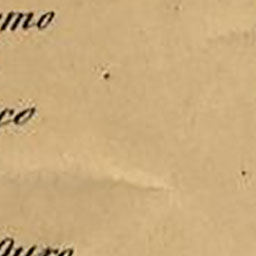 mo
co
guro